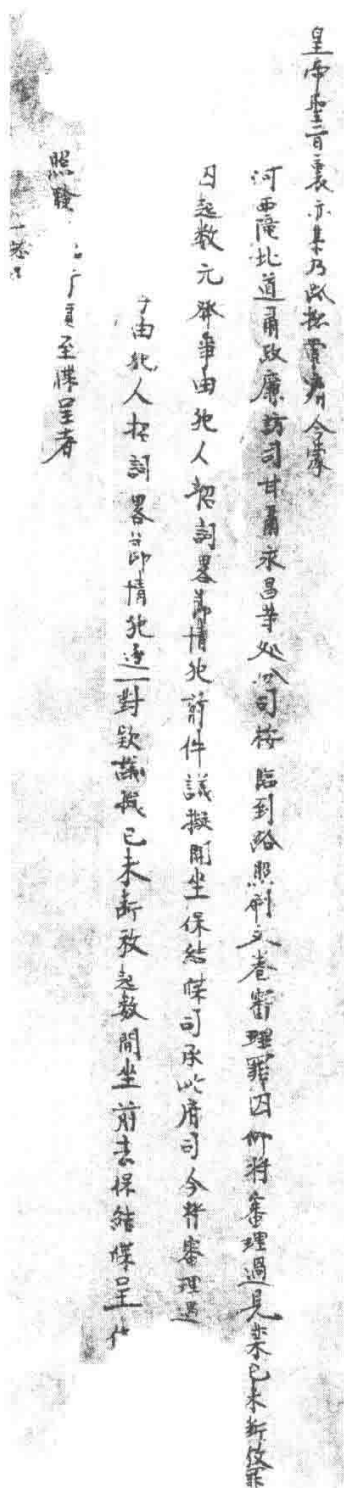 皇帝聖旨裏亦集乃路揔管府今蒙
河西隴北道肅政廉訪司甘肅永昌等処分司按臨到路照刷文卷審理罪囚仰將審理過見禁已未断放罪
囚起数元發事由犯人招詞畧節情犯前件議擬開坐保結牒司承此府司今将審理過
由犯人招詞畧節情犯逐一對款議擬已未断放起数開坐前去保結牒呈伏
照驗 須至牒呈者